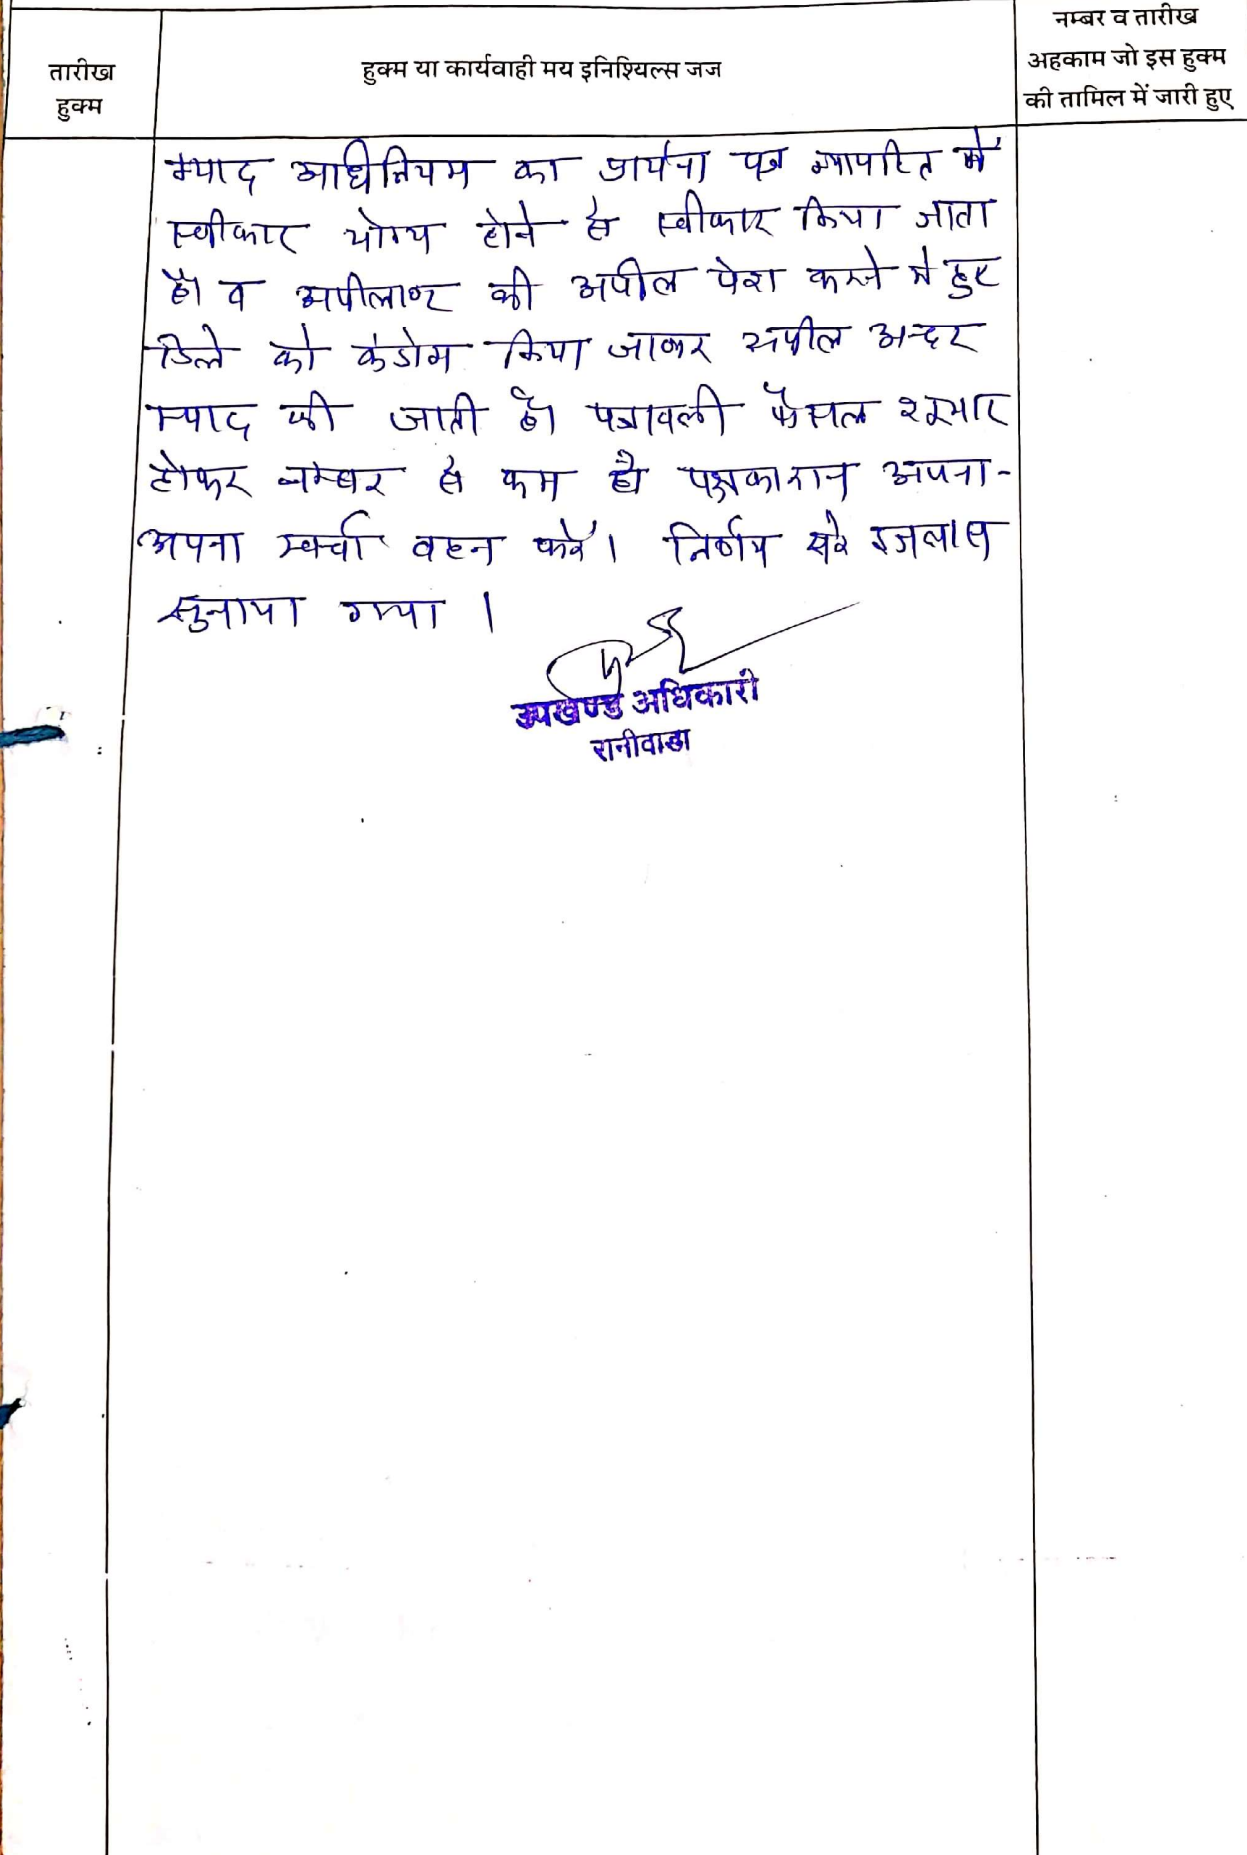 तारीख
हुक्म
हुक्म या कार्यवाही मय इनिश्यिल्स जज
नम्बर व तारीख
अहकाम जो इस हुक्म
की तामिल में जारी हुए
म्याद अधिनियम का प्रार्थना पत्र न्यायहित में
स्वीकार योग्य होने से स्वीकार किया जाता
है। व अपीलाण्ट की अपील पेश करने में हुए
डिले को कंडोम किया जाकर अपील अन्दर
म्याद की जाती है। पत्रावली फैसल शुमार
होकर नम्बर से कम हो पक्षकारान अपना-
अपना खर्चा वहन करें। निर्णय सरे इजलास
सुनाया गया ।
उपखण्ड अधिकारी
रानीवाडा